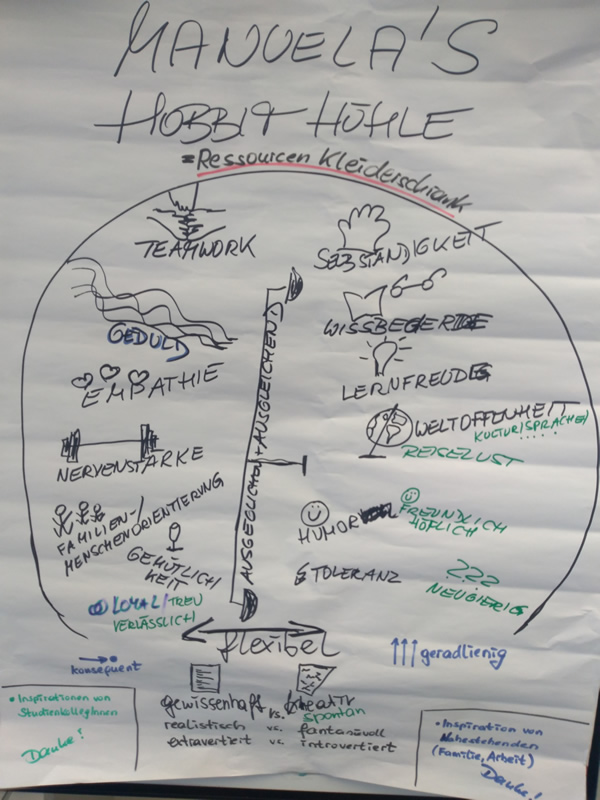 MANUELA'S
HOBBIT HÖHLE
= Ressourcen Kleiderschrank
TEAMWORK
GEDULD
EMPATHIE
NERVENSTÄRKE
FAMILIEN-/
MENSCHENORIENTIERUNG
GEMÜTLICH
KEIT
LOYAL/TREU
VERLÄSSLICH
AUSGEGLICHEN + AUSGLEICHEND
SELBSTÄNDIGKEIT
WISSBEGIERDE
LERNFREUDE
WELTOFFENHEIT
KULTUR/SPRACHE/
.....
REISELUST
HUMOR
FREUNDLICH
HÖFLICH
TOLERANZ
???
NEUGIERIG
flexibel
konsequent
geradlienig
gewissenhaft vs. kreativ
spontan
realistisch vs. fantasievoll
extravertiert vs. introvertiert
• Inspirationen von
StudienkollegInnen
Danke!
• Inspiration von
Nahestehenden
(Familie, Arbeit)
Danke!